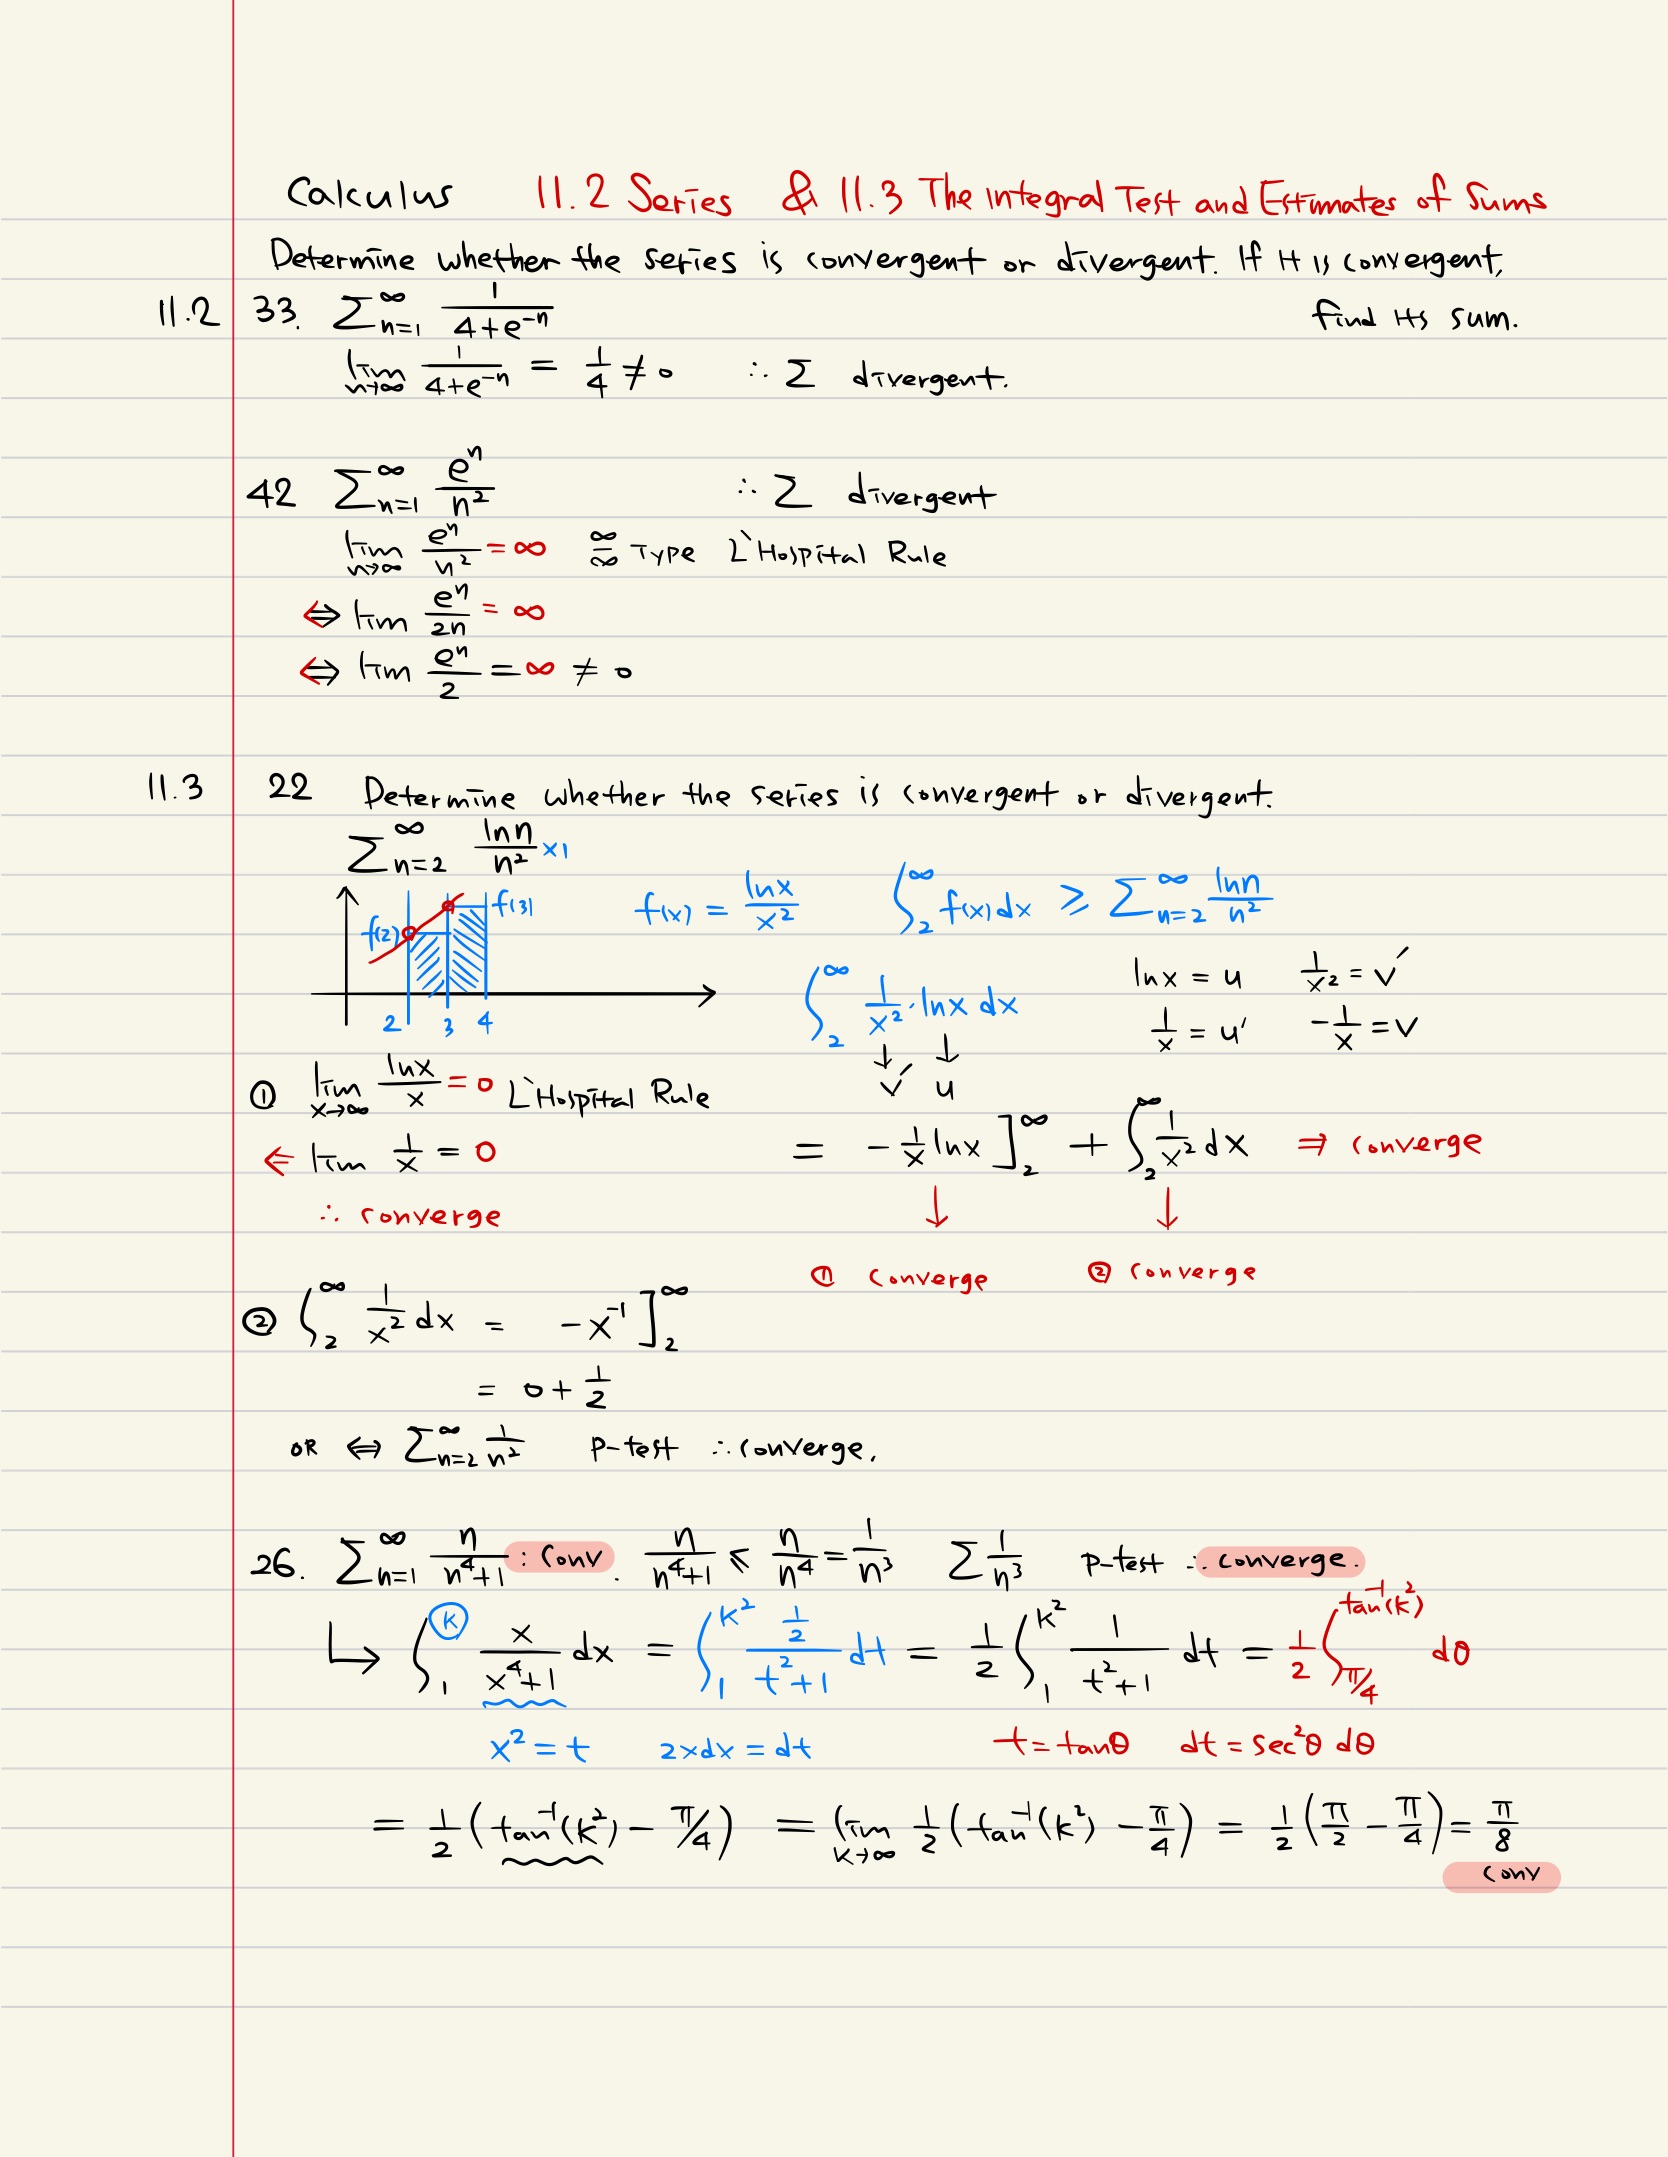 Calculus 11.2 Series & 11.3 The Integral Test and Estimates of Sums
Determine whether the series is convergent or divergent. If it is convergent,
find its sum.
11.2 33. ∑_{n=1}^∞ 1/(4+e^{-n})
lim_{n→∞} 1/(4+e^{-n}) = 1/4 ≠ 0 ∴ ∑ divergent.
42 ∑_{n=1}^∞ e^n/n^2 ∴ ∑ divergent
lim_{n→∞} e^n/n^2 = ∞ ∞/∞ Type L`Hospital Rule
⇔ lim e^n/2n = ∞
⇔ lim e^n/2 = ∞ ≠ 0
11.3 22 Determine whether the series is convergent or divergent.
∑_{n=2}^∞ ln n/n^2 ×1
f(2) f(3)
2 3 4
f(x) = ln x/x^2 ∫_2^∞ f(x) dx ≥ ∑_{n=2}^∞ ln n/n^2
∫_2^∞ 1/x^2 · ln x dx
v' u
ln x = u 1/x^2 = v'
1/x = u' -1/x = v
① lim_{x→∞} ln x/x = 0 L`Hospital Rule
⇐ lim 1/x = 0
∴ converge
= -1/x ln x ]_2^∞ + ∫_2^∞ 1/x^2 dx ⇒ converge
↓ ↓
① converge ② converge
② ∫_2^∞ 1/x^2 dx = -x^{-1} ]_2^∞
= 0 + 1/2
OR ⇔ ∑_{n=2}^∞ 1/n^2 P-test ∴ converge.
26. ∑_{n=1}^∞ n/(n^4+1) : Conv. n/(n^4+1) ≤ n/n^4 = 1/n^3 ∑ 1/n^3 P-test ∴ converge.
↳ ∫_1^k x/(x^4+1) dx = ∫_1^{k^2} (1/2)/(t^2+1) dt = 1/2 ∫_1^{k^2} 1/(t^2+1) dt = 1/2 ∫_{π/4}^{tan^{-1}(k^2)} dθ
x^2 = t 2xdx = dt t = tanθ dt = sec^2θ dθ
= 1/2 (tan^{-1}(k^2) - π/4) = lim_{k→∞} 1/2 (tan^{-1}(k^2) - π/4) = 1/2 (π/2 - π/4) = π/8
Conv